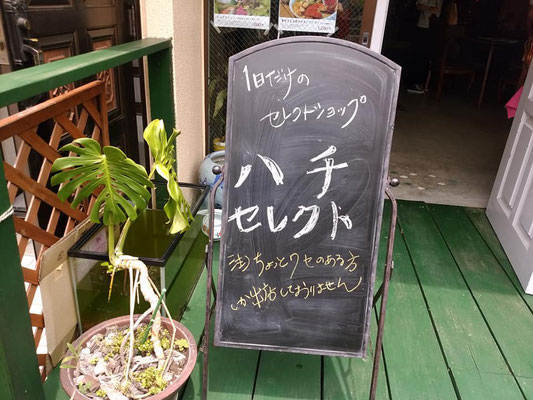 1日だけの
セレクトショップ
ハチ
セレクト
注)ちょっとクセのある方
しか出店しておりません